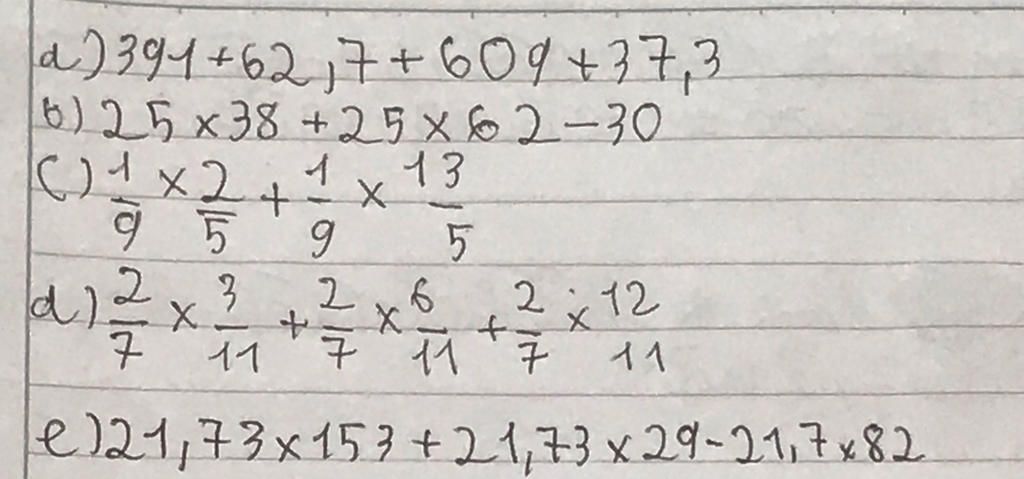 a) 391 + 62,7 + 609 + 37,3
b) 25 × 38 + 25 × 62 - 30
c) 1/9 × 2/5 + 1/9 × 13/5
d) 2/7 × 3/11 + 2/7 × 6/11 + 2/7 × 12/11
e) 21,73 × 153 + 21,73 × 29 - 21,7 × 82